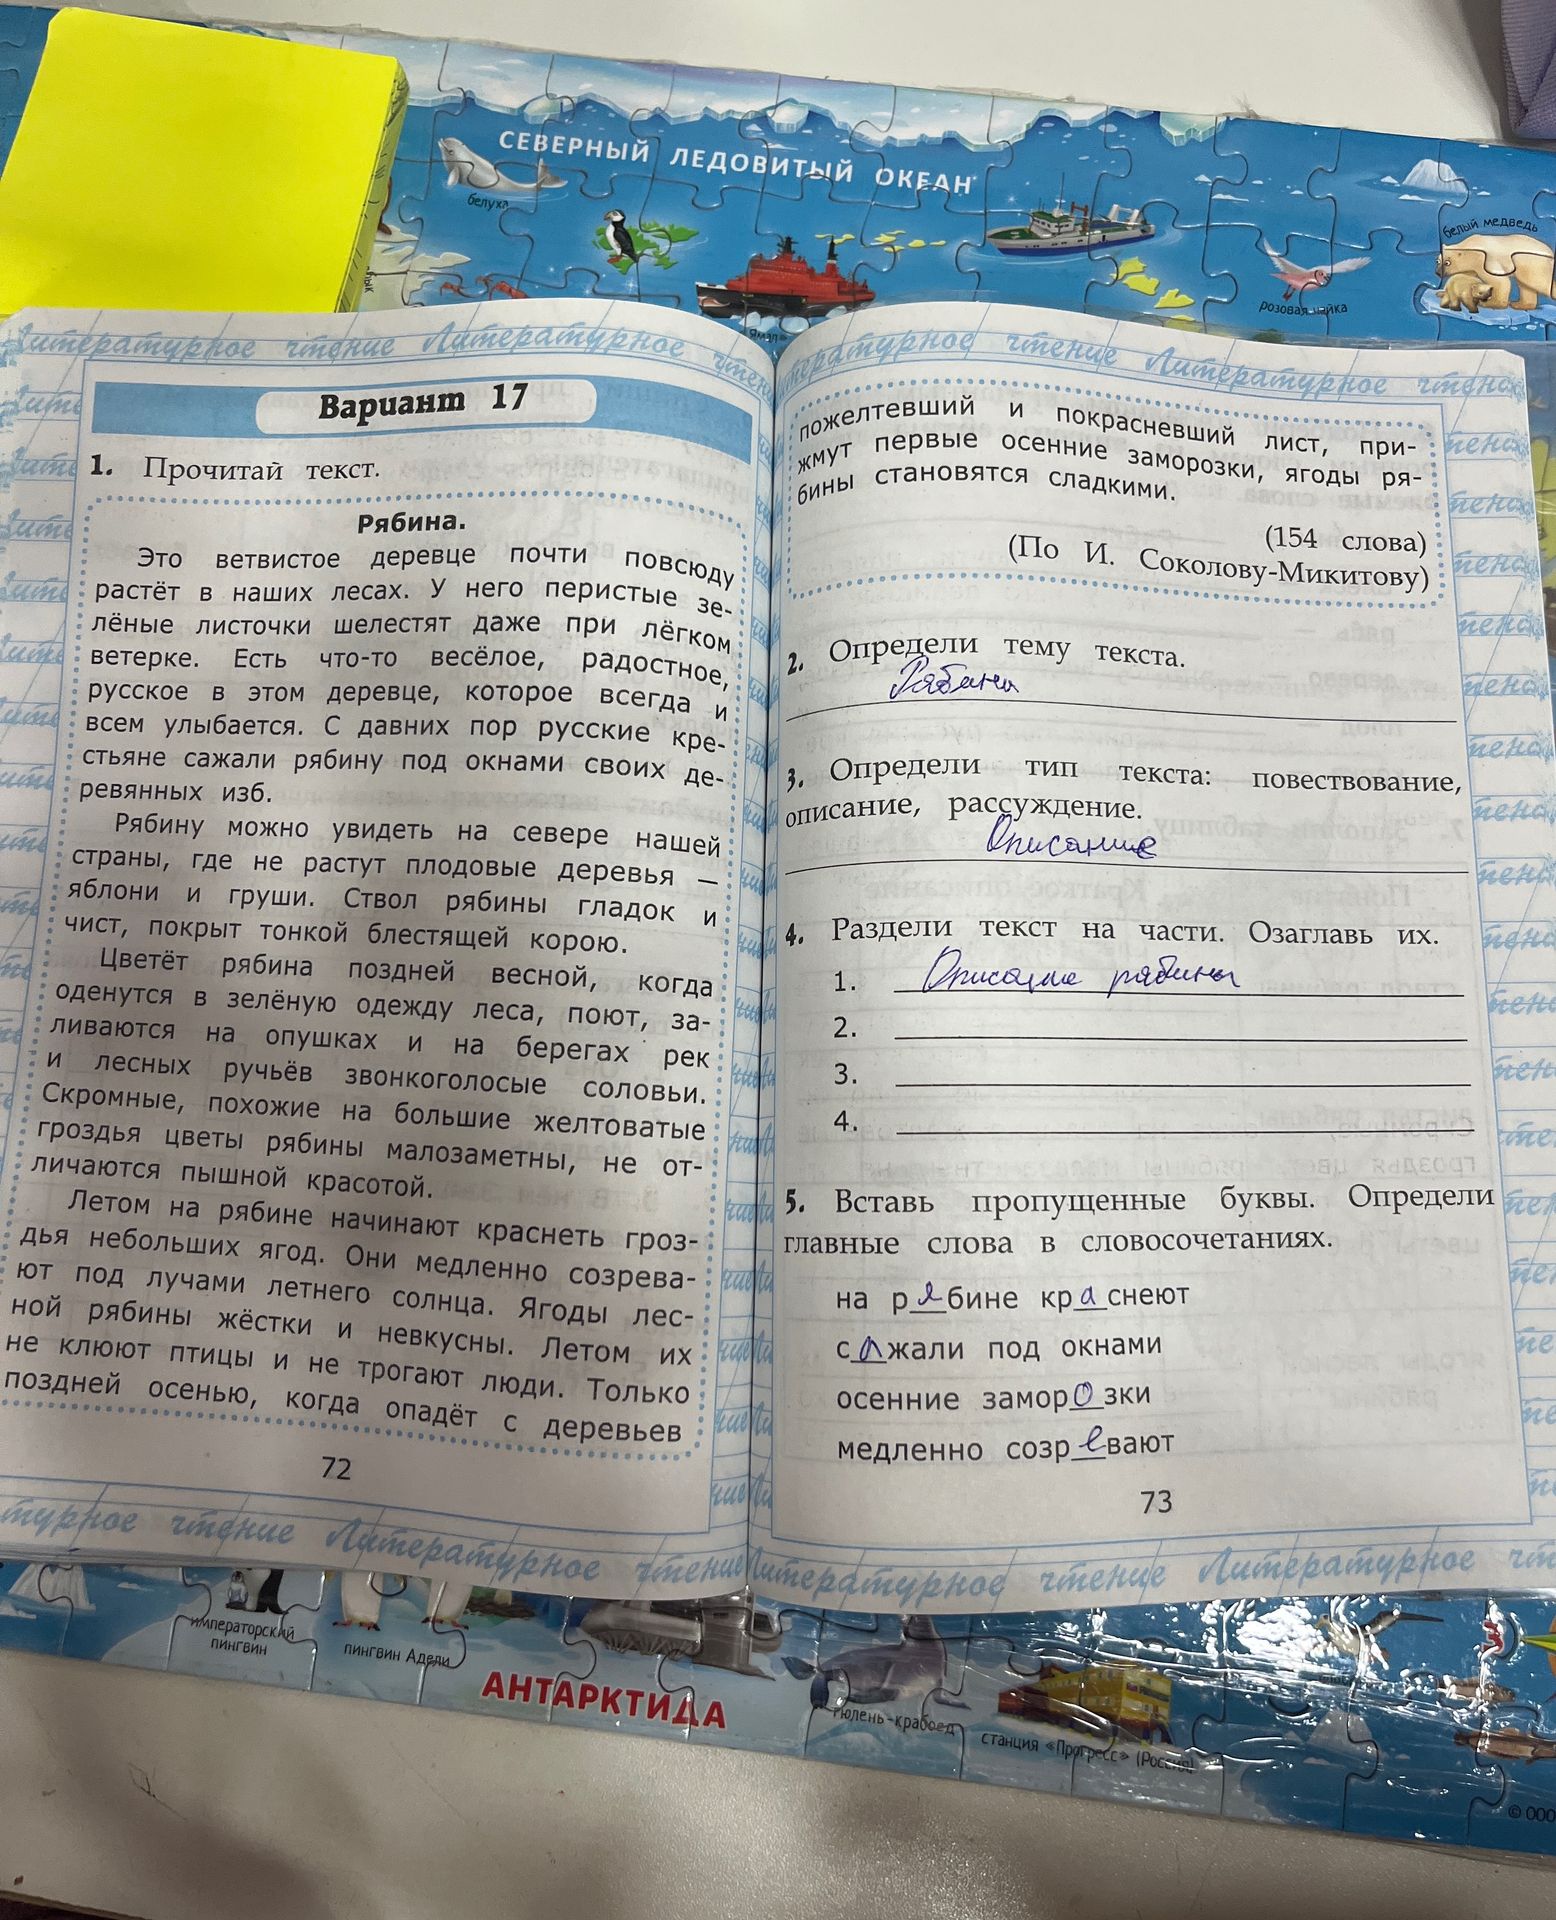 СЕВЕРНЫЙ ЛЕДОВИТЫЙ ОКЕАН
белуха
белый медведь
розовая чайка
Ямал
Литературное чтение Литературное чтение
Литературное чтение Литературное чтение
Вариант 17
1. Прочитай текст.
Рябина.
Это ветвистое деревце почти повсюду
растёт в наших лесах. У него перистые зе-
лёные листочки шелестят даже при лёгком
ветерке. Есть что-то весёлое, радостное,
русское в этом деревце, которое всегда и
всем улыбается. С давних пор русские кре-
стьяне сажали рябину под окнами своих де-
ревянных изб.
Рябину можно увидеть на севере нашей
страны, где не растут плодовые деревья —
яблони и груши. Ствол рябины гладок и
чист, покрыт тонкой блестящей корою.
Цветёт рябина поздней весной, когда
оденутся в зелёную одежду леса, поют, за-
ливаются на опушках и на берегах рек
и лесных ручьёв звонкоголосые соловьи.
Скромные, похожие на большие желтоватые
гроздья цветы рябины малозаметны, не от-
личаются пышной красотой.
Летом на рябине начинают краснеть гроз-
дья небольших ягод. Они медленно созрева-
ют под лучами летнего солнца. Ягоды лес-
ной рябины жёстки и невкусны. Летом их
не клюют птицы и не трогают люди. Только
поздней осенью, когда опадёт с деревьев
72
пожелтевший и покрасневший лист, при-
жмут первые осенние заморозки, ягоды ря-
бины становятся сладкими.
(154 слова)
(По И. Соколову-Микитову)
2. Определи тему текста.
Рябина
3. Определи тип текста: повествование,
описание, рассуждение.
Описание
4. Раздели текст на части. Озаглавь их.
1. Описание рябины
2.
3.
4.
5. Вставь пропущенные буквы. Определи
главные слова в словосочетаниях.
на рябине краснеют
сажали под окнами
осенние заморозки
медленно созревают
73
Литературное чтение
Литературное чтение Литературное
императорский
пингвин
пингвин Адели
АНТАРКТИДА
тюлень-крабоед
станция «Прогресс» (Россия)
© ООО